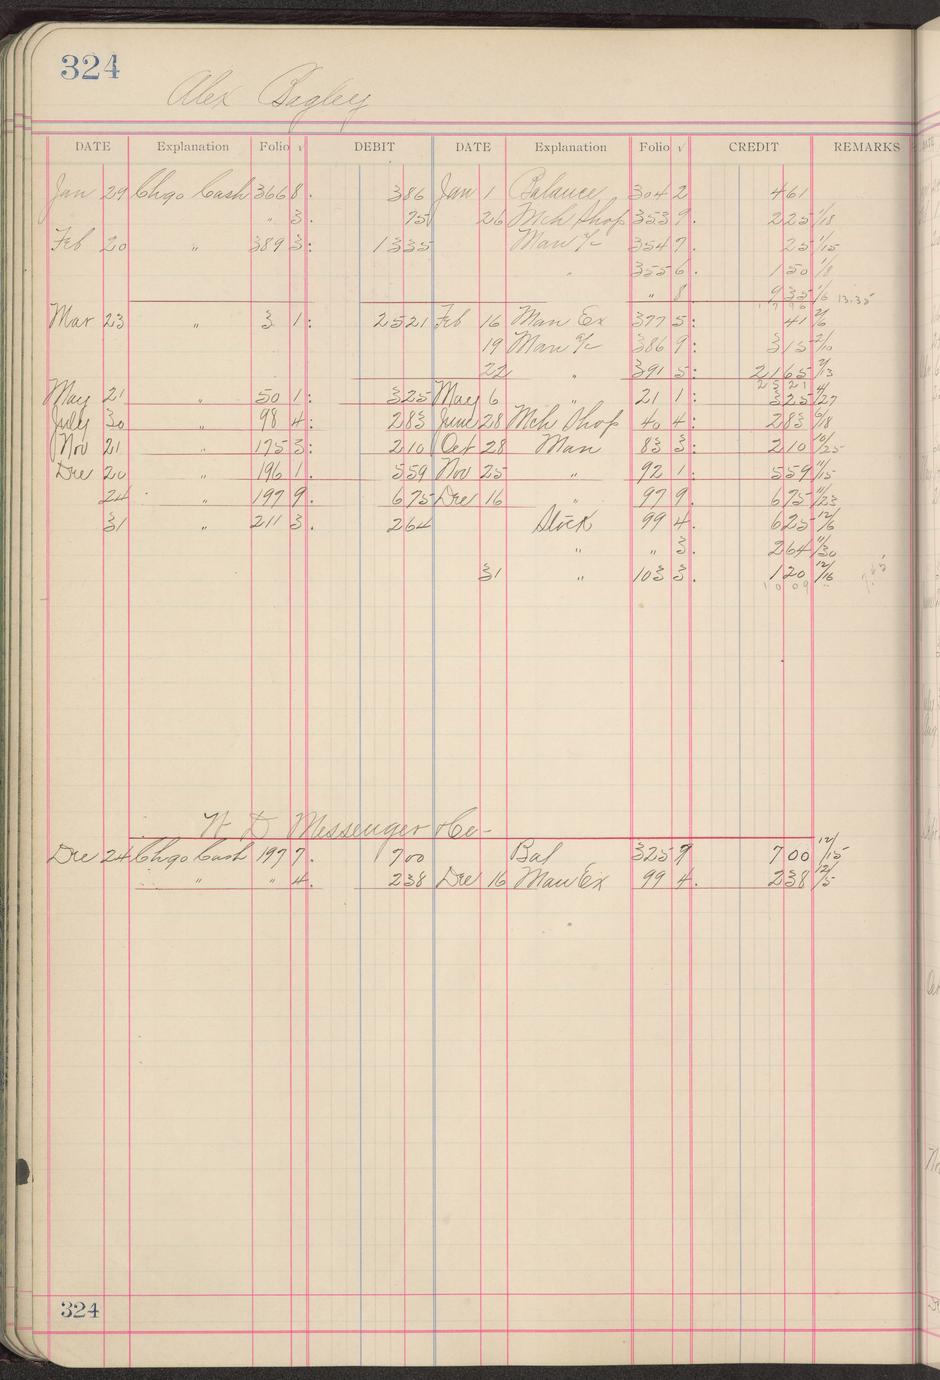 324
Alex Bagley
DATE Explanation Folio √ DEBIT DATE Explanation Folio √ CREDIT REMARKS
Jan 29 Chgo Cash 366 8. 386 Jan 1 Balance 304 2 461
" 3. 75 26 Mch Shop 353 9. 225 1/18
Feb 20 " 389 3: 1335 Man a/c 354 7. 25 1/15
" 355 6. 150 1/8
" 8 935 1/6 13.35
Mar 23 " 3 1: 2521 Feb 16 Man Ex 377 5: 41 2/6
19 Man a/c 386 9: 315 2/10
22 " 391 5: 2165 2/13
2521
May 21 " 50 1: 325 May 6 " 21 1: 325 4/27
July 30 " 98 4: 283 June 28 Mch Shop 40 4: 283 6/18
Nov 21 " 175 3: 210 Oct 28 Man 83 3: 210 10/25
Dec 20 " 196 1. 559 Nov 25 " 92 1: 559 11/15
24 " 197 9. 675 Dec 16 " 97 9. 675 11/23
31 " 211 3. 264 Stock 99 4. 625 12/6
" " 3. 264 11/30
31 " 103 3. 120 12/16
1009
N D Messenger & Co-
Dec 24 Chgo Cash 197 7. 700 Bal 325 9 700 12/15
" " 4. 238 Dec 16 Man Ex 99 4. 238 12/5
324